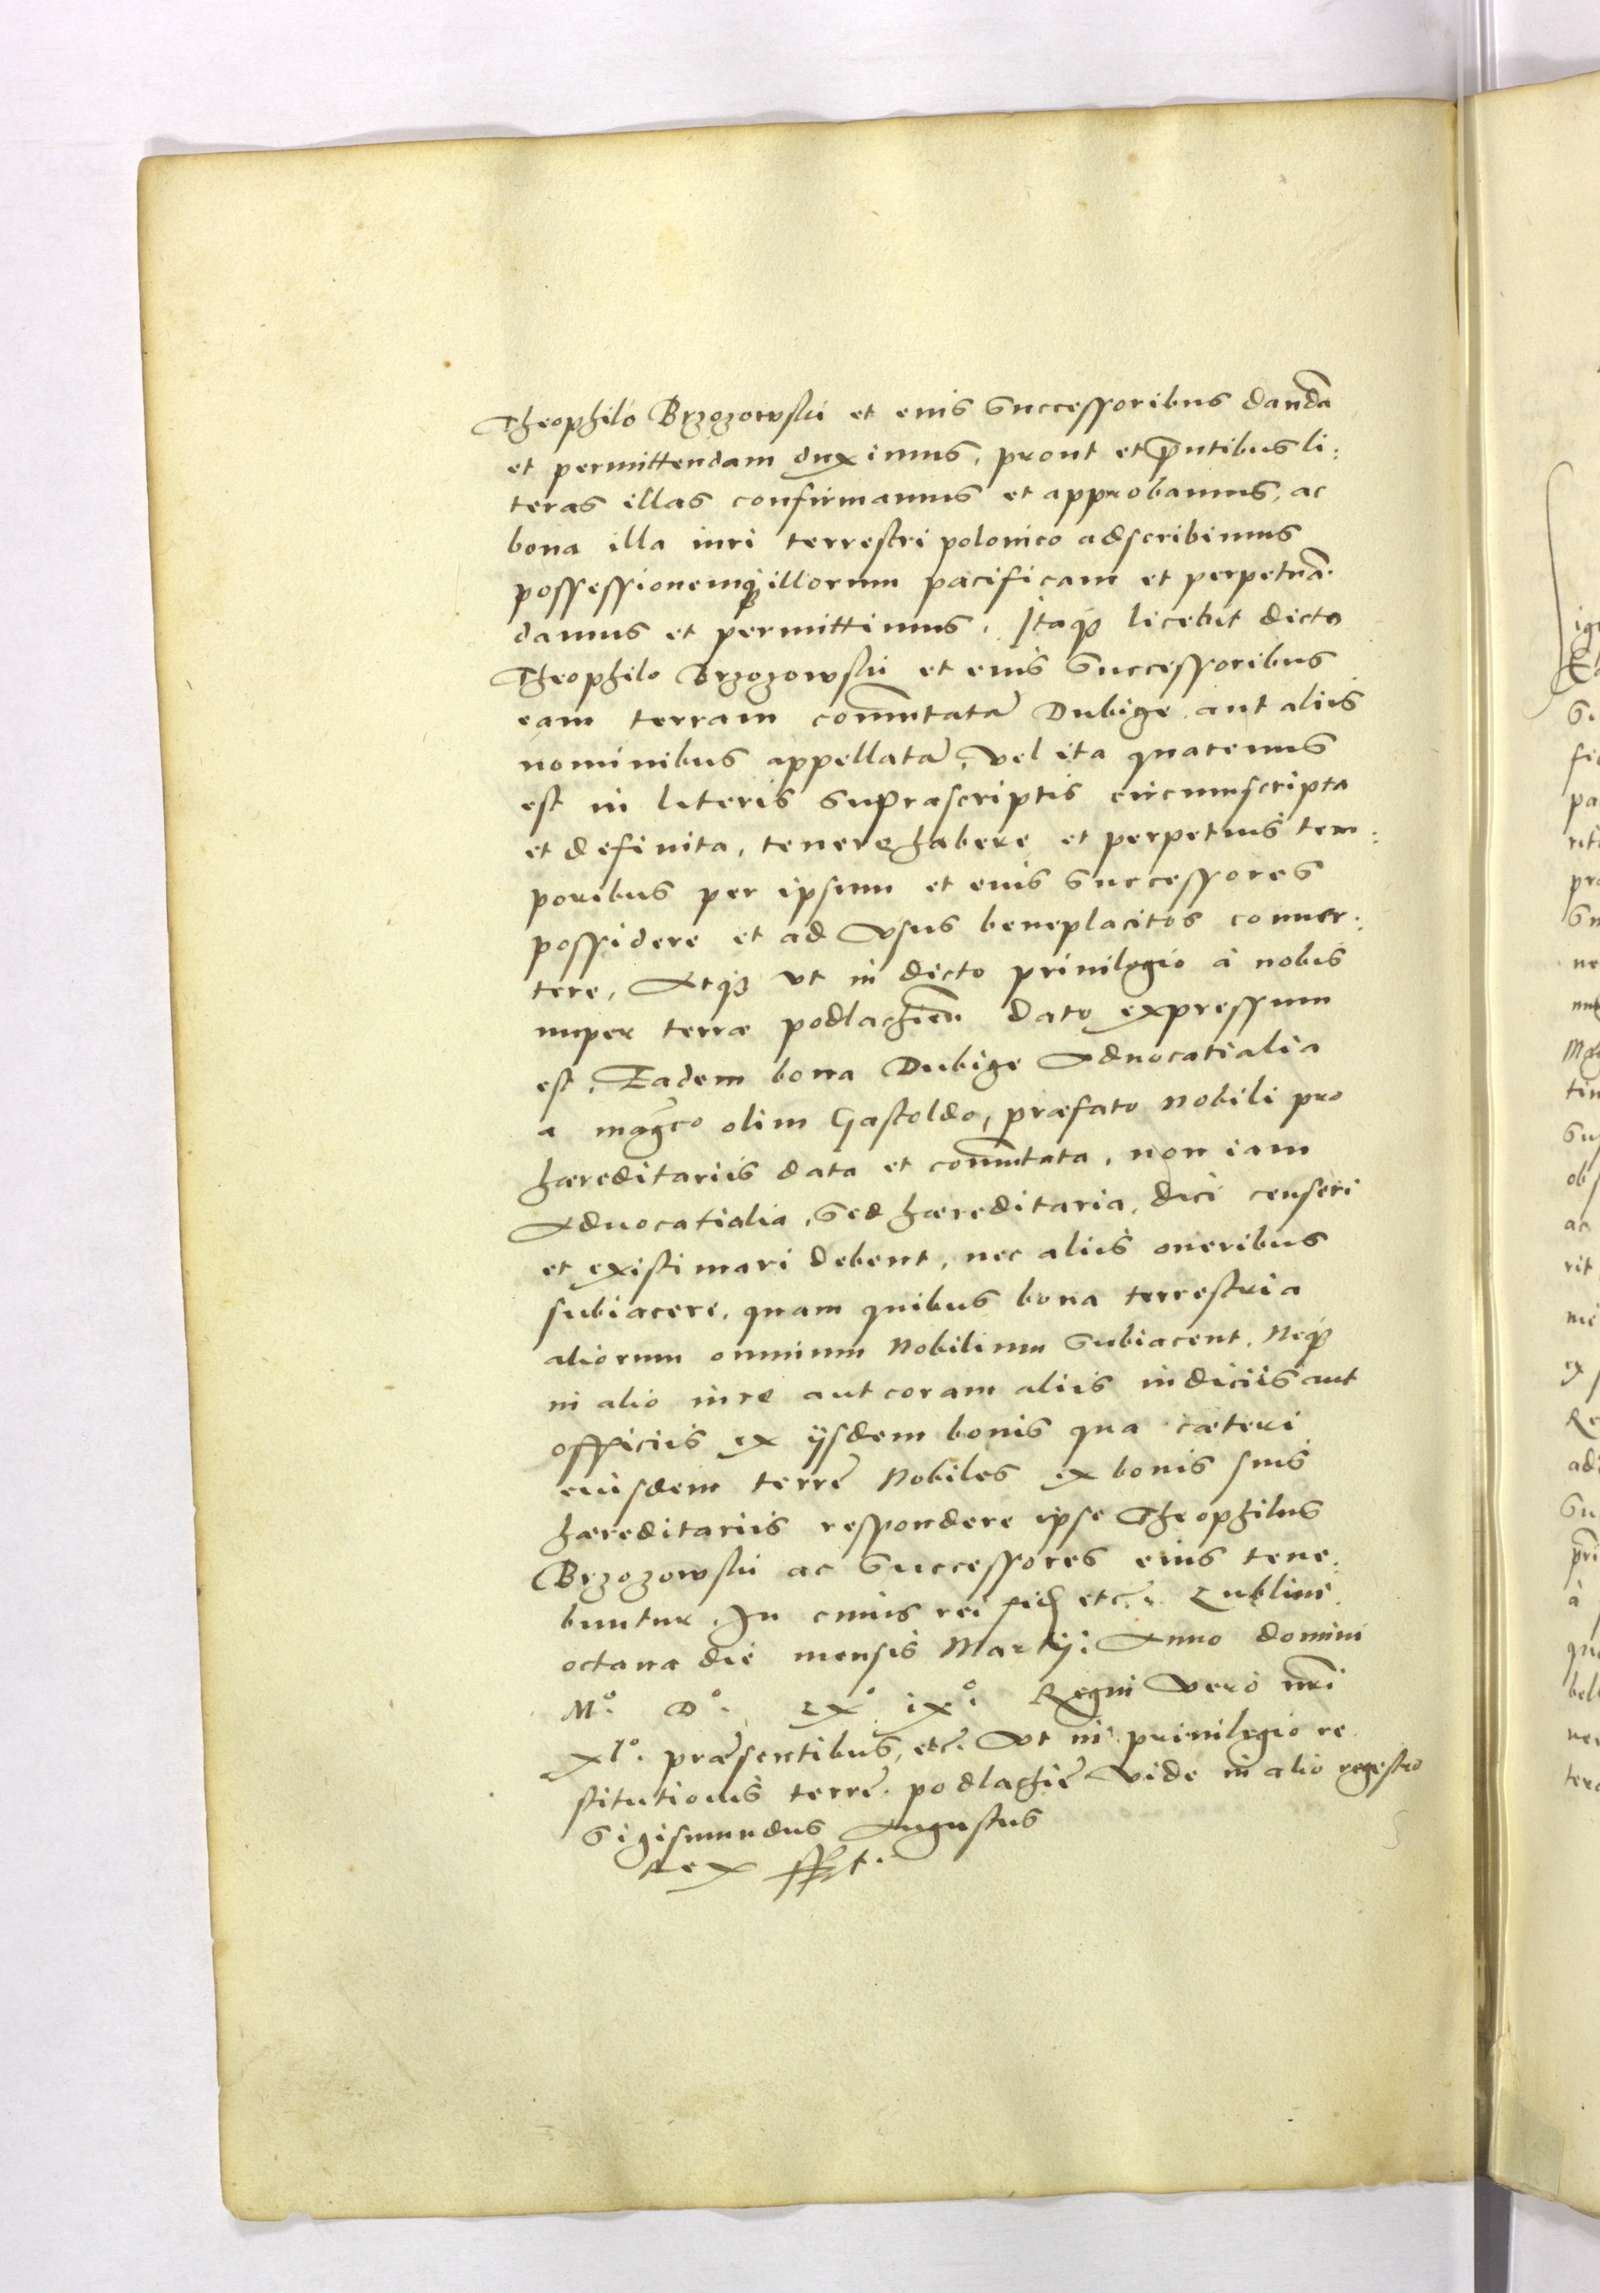 Theophilo Brzozowski et eius Successoribus dandã
et permittendam duximus, prout et p̃ntibus li:
teras illas confirmamus et approbamus, ac
bona illa iuri terrestri polonico adscribimus
possessionemq́ illorum pacificam et perpetuã
damus et permittimus. Itaq́ licebit dicto
Theophilo Brzozowski et eius Successoribus
eam terram com̃utatã Dubige aut aliis
nominibus appellatã, vel ita quatenus
est in literis Supræscriptis circumscripta
et definita, tenere habere et perpetuis tem:
poribus per ipsum et eius Successores
possidere et ad vsus beneplacitos conuer:
tere, Atq́ vt in dicto priuilegio à nobis
nuper terræ podlachieñ dato expressum
est. Eadem bona Dubige Aduocatialia
a magco olim Gastoldo, præfato Nobili pro
hæreditariis data et com̃utata, non iam
Aduocatialia, Sed hæreditaria, dici censeri
et existimari debent, nec aliis oneribus
subiacere, quam quibus bona terrestria
aliorum omnium Nobilium Subiacent. Neq́
in alio iure aut coram aliis iudiciis aut
officiis ex ijsdem bonis qua cæteri
eiusdem terrę Nobiles ex bonis suis
hæreditariis respondere ipse Theophilus
Brzozowski ac Successores eius tene:
buntur. In cuius rei fid etc̃. Lublini
octaua die mensis Martij: Anno domini
M° D° LX° ix°. Regni vero nr̃i
xl°. præsentibus, etc̃. Vt in priuilegio re
stitutionis terrę podlachię vide in alio regestro
Sigismundus Augustus
Rex sspt.